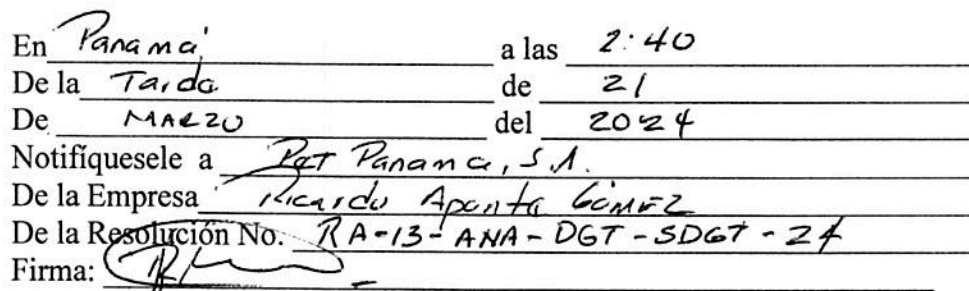 En Panamá a las 2:40
De la Tarde de 21
De MARZO del 2024
Notifíquesele a PGT Panama, S.A.
De la Empresa Ricardo Aponte GómEz
De la Resolución No. RA-13-ANA-DGT-SDGT-24
Firma: